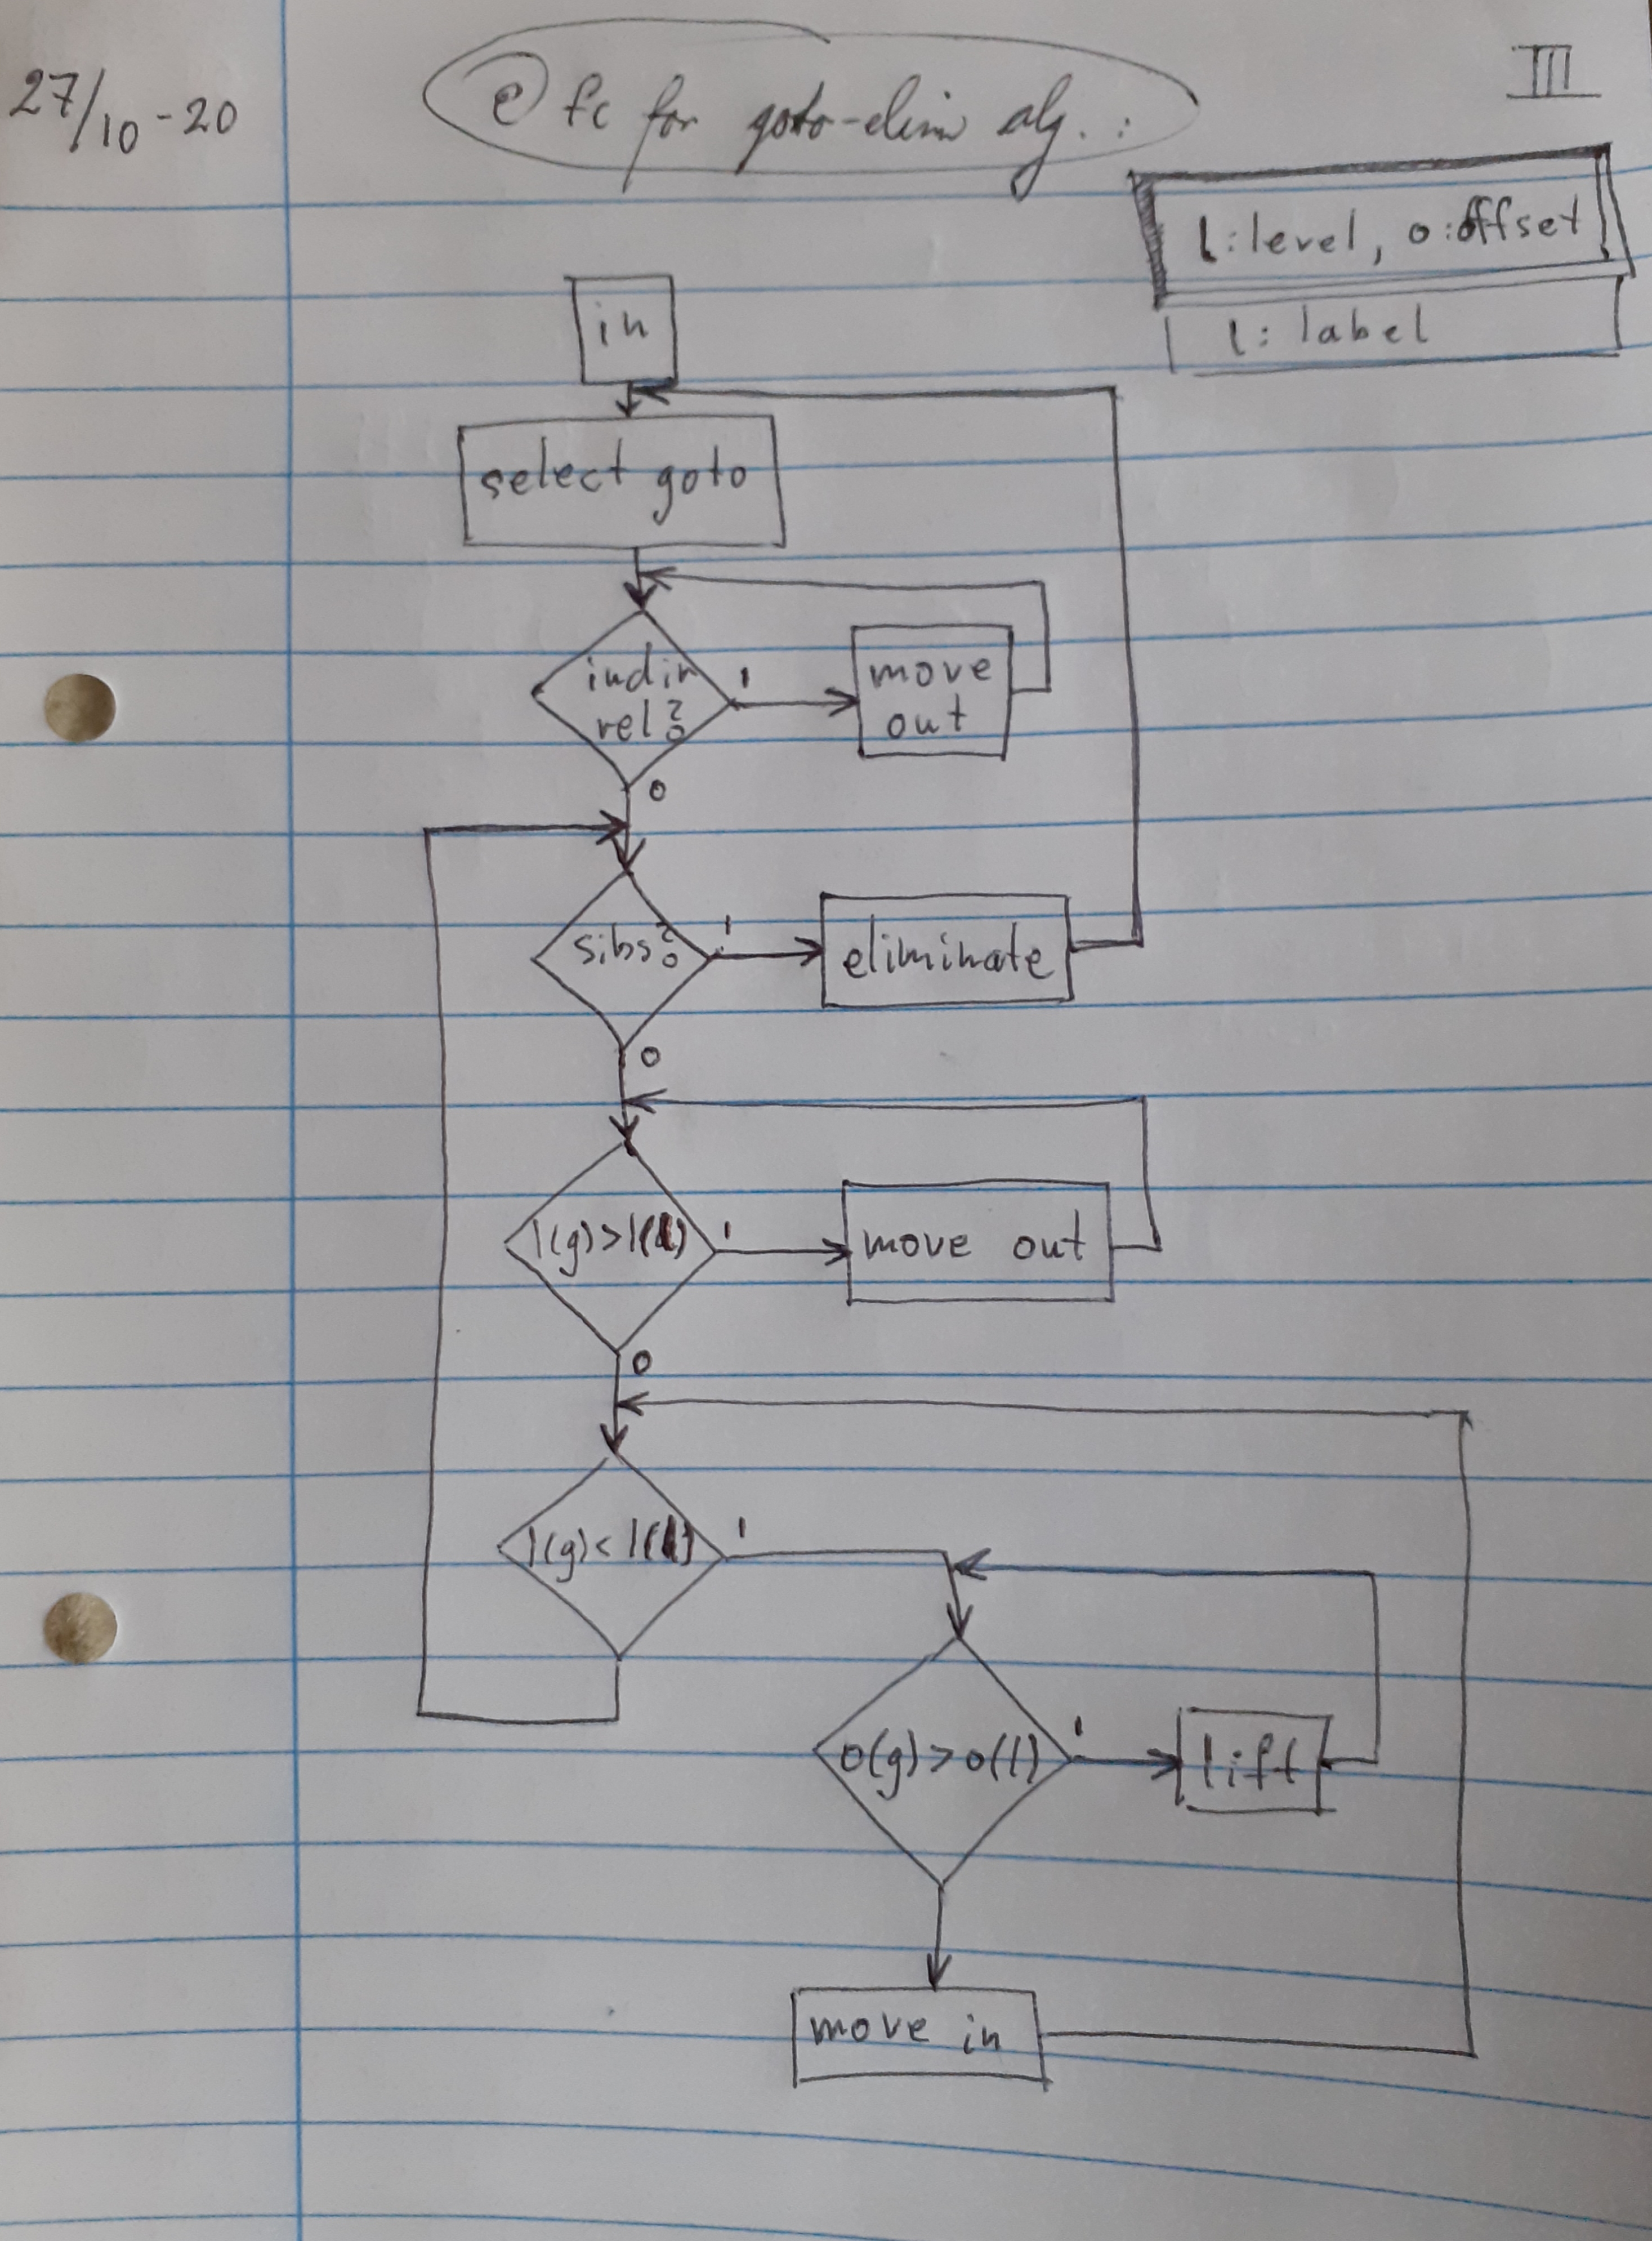 27/10-20
e) fc for goto-elim alg. :
III
l: level, o: offset
l: label
in
select goto
indir
rel?
1
move
out
0
sibs?
1
eliminate
0
l(g)>l(l)
1
move out
0
l(g)<l(l)
1
o(g)>o(l)
1
lift
move in